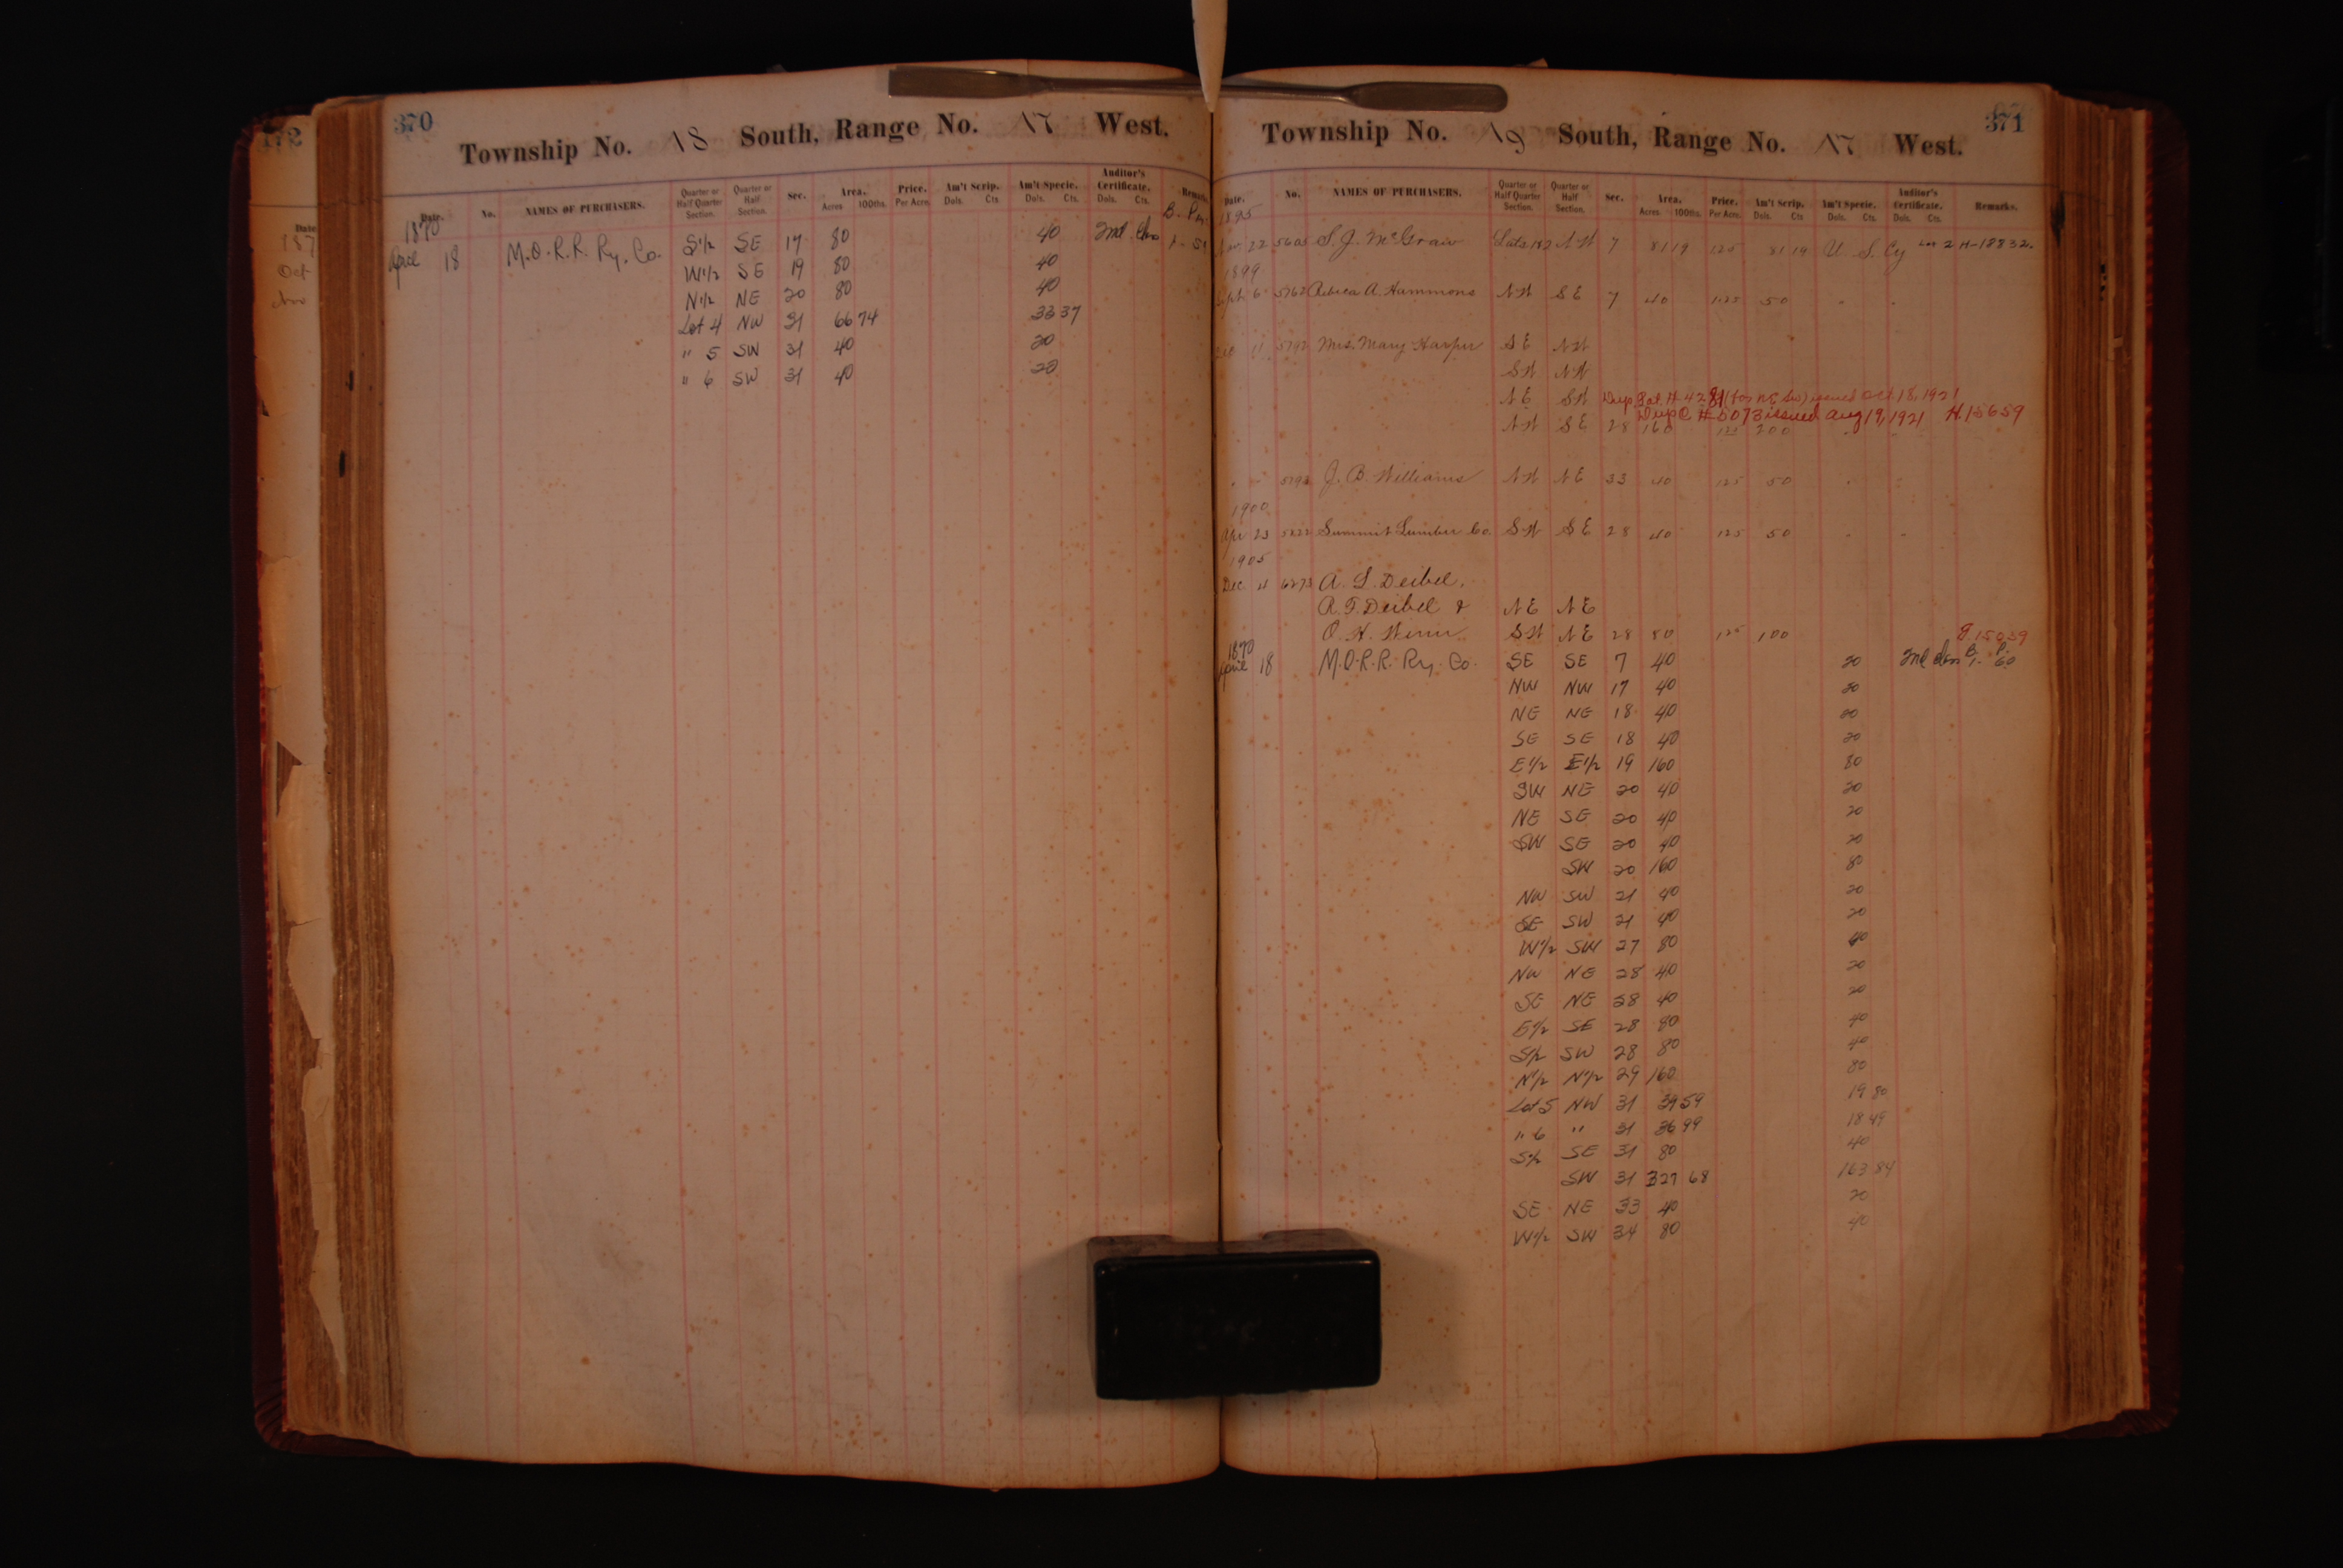 172
Date
187
Oct
Nov
370
Township No. 18 South, Range No. 17 West.
Date. No. NAMES OF PURCHASERS. Quarter or Half Quarter Section. Quarter or Half Section. Sec. Area. Acres 100ths. Price. Per Acre. Am't Scrip. Dols. Cts Am't Specie. Dols. Cts. Auditor's Certificate. Dols. Cts. Remarks
1870
April 18 M.O.R.R. Ry. Co. S1/2 SE 17 80 40 2nd
W1/2 SE 19 80 40
N1/2 NE 20 80 40
Lot 4 NW 31 66 74 33 37
" 5 SW 31 40 20
" 6 SW 31 40 20
371
Township No. 19 South, Range No. 17 West.
Date. No. NAMES OF PURCHASERS. Quarter or Half Quarter Section. Quarter or Half Section. Sec. Area. Acres 100ths. Price. Per Acre. Am't Scrip. Dols. Cts Am't Specie. Dols. Cts. Auditor's Certificate. Dols. Cts. Remarks.
1895
22 5603 S. J. McGraw Lots 1&2 NW 7 81 19 1.25 81 19 U. S. Cy 2 H-18832.
1899
Sept 6 5762 Rebeca A. Hammons NW SE 7 40 1.25 50
11 5792 Mrs. Mary Harper SE NW
SW NW
NE SW Dup Pat. H-4281 (for NE SW) issued Oct. 18, 1921
Dup C #5073 issued Aug 19, 1921 H.15659
NW SE 28 160 1.25 200
5793 J. B. Williams NW NE 33 40 1.25 50
1900
Apr 23 5822 Summit Lumber Co. SW SE 28 40 1.25 50
1905
Dec 11 6273 A. L. Deibel,
A. F. Deibel &
NE NE
O. H. SW NE 28 80 1.25 100 15039
1870
April 18 M.O.R.R. Ry. Co. SE SE 7 40 20 2nd B. P. 1- 60
NW NW 17 40 20
NE NE 18 40 20
SE SE 18 40 20
E1/2 E1/2 19 160 80
SW NE 20 40 20
NE SE 20 40 20
SW SE 20 40 20
SW 20 160 80
NW SW 21 40 20
SE SW 21 40 20
W1/2 SW 27 80 40
NW NE 28 40 20
SE NE 28 40 20
E1/2 SE 28 80 40
S1/2 SW 28 80 40
N1/2 N1/2 29 160 80
Lot 5 NW 31 39 59 19 80
" 6 " 31 36 99 18 49
S1/2 SE 31 80 40
SW 31 327 68 163 84
SE NE 33 40 20
W1/2 SW 34 80 40